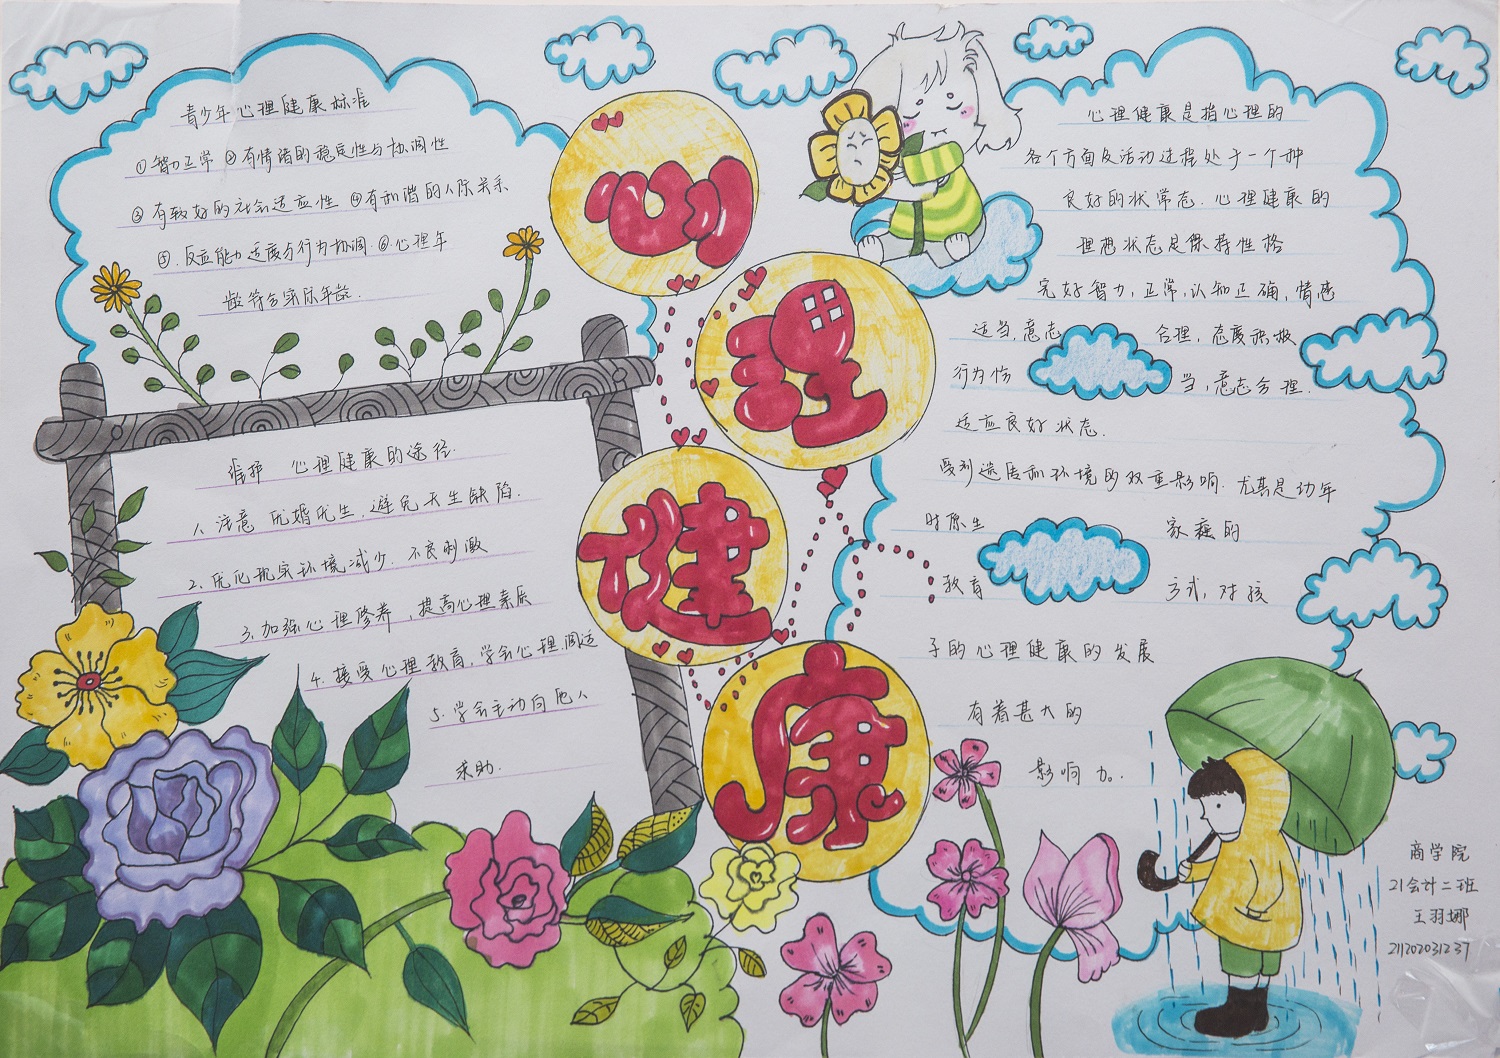 青少年心理健康标准
①智力正常 ②有情绪的稳定性与协调性
③有较好的社会适应性 ④有和谐的人际关系
⑤.反应能力适度与行为协调.⑥心理年
龄符合实际年龄.
心理健康
维护 心理健康的途径.
1.注意优婚优生,避免天生缺陷.
2.优化现实环境减少.不良刺激
3.加强心理修养,提高心理素质
4.接受心理教育,学会心理.调适
5.学会主动向他人
求助.
心理健康是指心理的
各个方面及活动过程处于一个种
良好的状常态.心理健康的
理想状态是保持性格
完好智力,正常,认知正确,情感
适当,意志 合理,态度积极
行为恰 当,意志合理.
适应良好状态.
受到遗传和环境的双重影响.尤其是幼年
时原生 家庭的
教育 方式,对孩
子的心理健康的发展
有着甚大的
影响力.
商学院
21会计二班
王羽娜
211202031237